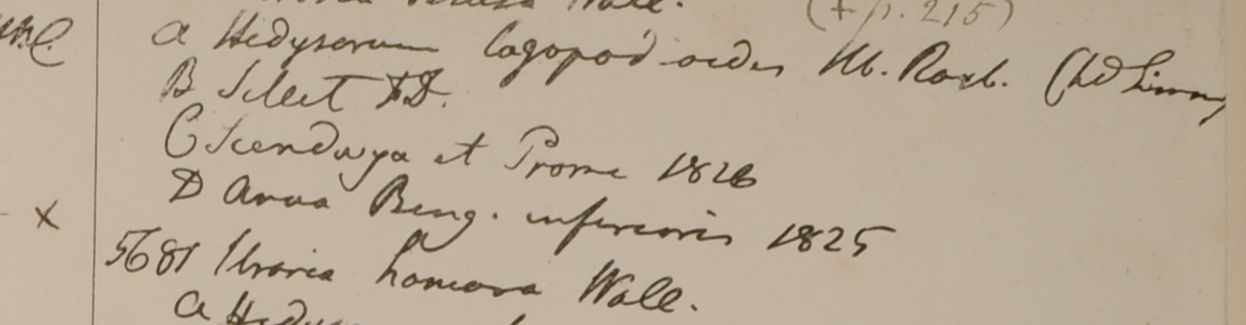 Wall. (+ p. 215)
a Hedysarum lagopodioides Hb. Roxb. (hd Linn)
B Sillet FD.
C Segaen et Prome 1826
D Arva Beng. inferioris 1825
X
5681 Uraria hamosa Wall.
a